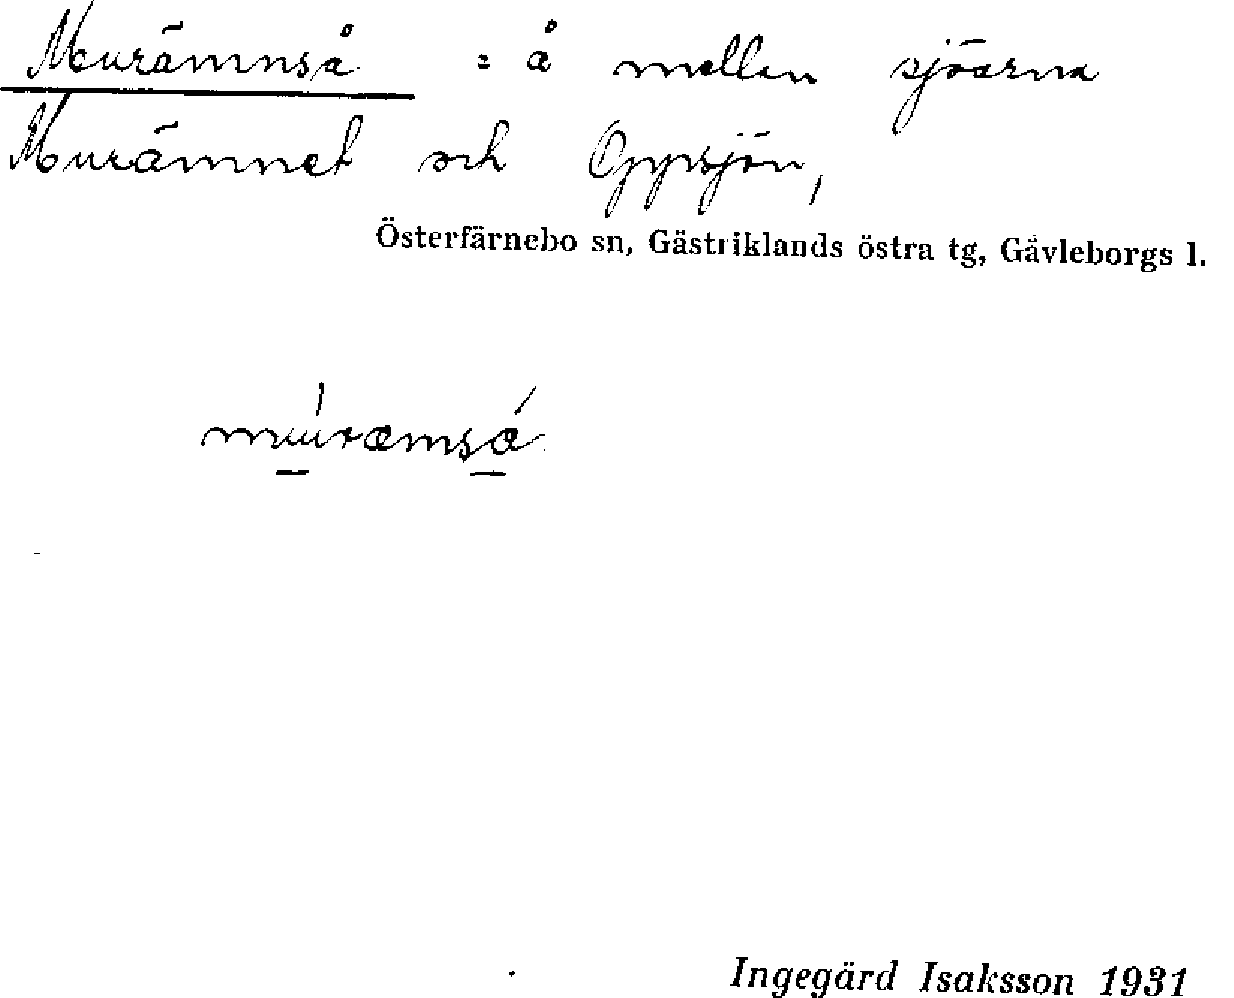 Murämnså = å mellan sjöarna
Murämnet och Gypsjön,
Österfärnebo sn, Gästriklands östra tg, Gävleborgs l.
Ingegärd Isaksson 1931